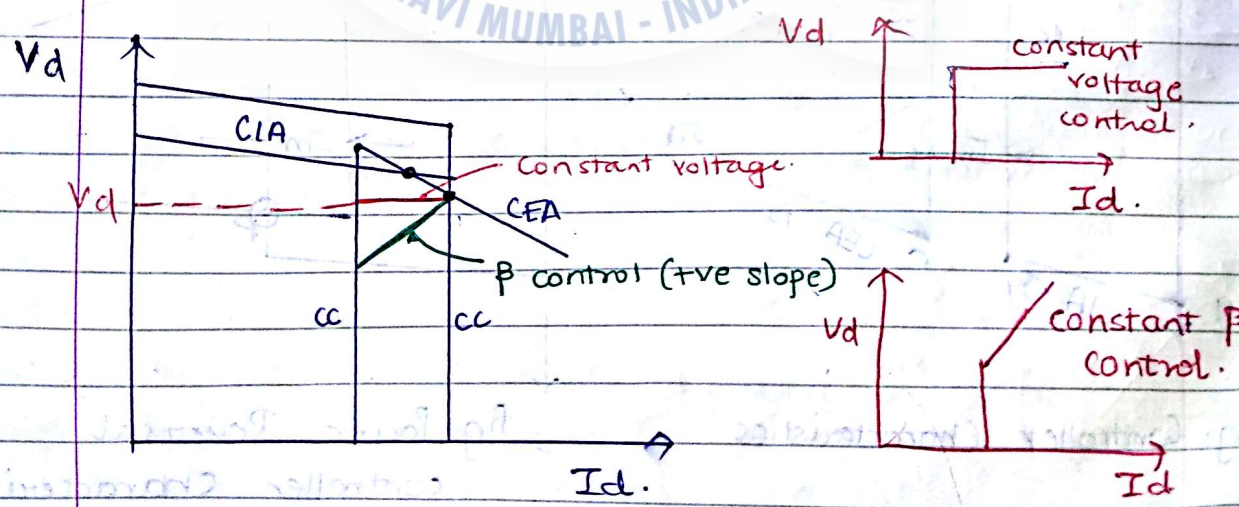 AVI MUMBAI - INDI
Vd
CIA
Vd
Constant voltage.
CEA
β control (+ve slope)
CC
CC
Id.
Vd
constant
voltage
control.
Id.
Vd
constant β
control.
Id
controller characteri